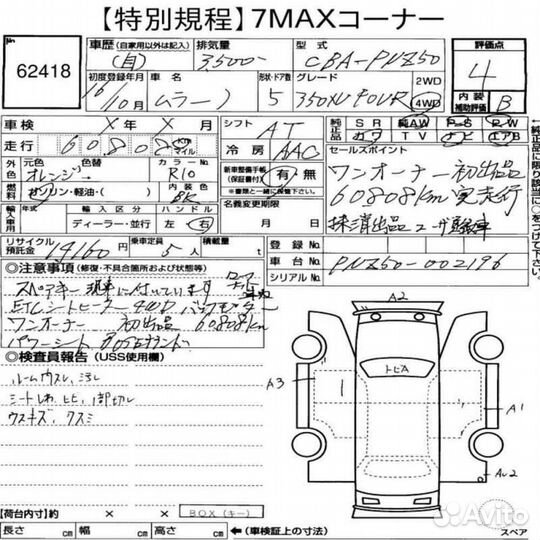 【特別規程】7MAXコーナー
№ 62418
車歴(自家用以外は記入) (自)
排気量 3500
型式 CBA-PNZ50
評価点 4
初度登録年月 16/10月
車名 ムラーノ
形状・ドア数 5
グレード 350XV FOUR
2WD
4WD
内装補助評価 B
車検 × 年 × 月
シフト AT
純正品 SR 純AW P-S P-W
カワ TV ナビ エアB
走行 60808 km マイル
冷房 AAC
セールスポイント
外色 元色 オレンジ→ 色替
カラーNo. R10
新車整備手帳(保証書付) 有・無
ワンオーナー 初出品
60808km 実走行
燃料 ガソリン・軽油・( )
内装色 BK
名義変更期限
月 日
輸入車用 年式 輸入区分 ハンドル
ディーラー・並行 左 右
リサイクル預託金 円
乗車定員 5人
積載量 t
登録No.
車台No. PNZ50-002196
シリアルNo.
◎注意事項(修復・不具合箇所および状態等)
スペアキー 現車に付いています
ETC シートヒーター 4WD バックモニター
ワンオーナー 初出品 60808km
パワーシート BOSEサウンド
◎検査員報告(USS使用欄)
ルームウスレ、汚レ
シートしわ、
ウスキズ、クスミ
A2
トビA
A3
A1
【荷台内寸】約 × ×
BOX(キー)
長さ cm 幅 cm 高さ cm ←(車検証上の寸法)
スペア
Avito